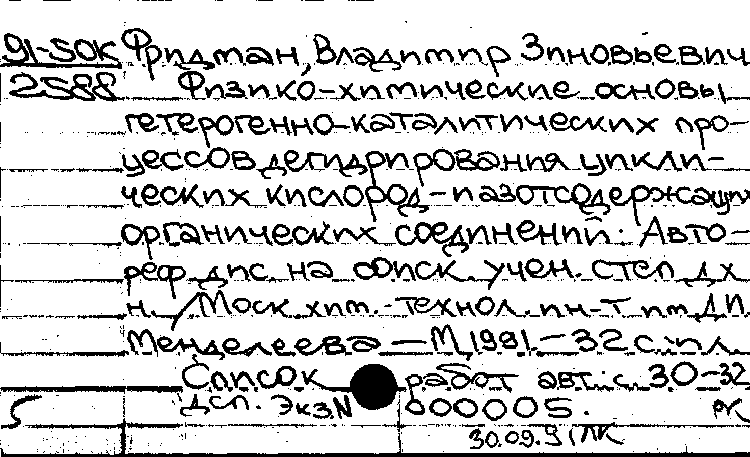 91-50К Фридман, Владимир Зиновьевич
2588 Физико-химические основы
гетерогенно-каталитических про-
цессов дегидрирования цикли-
ческих кислород- и азотсодержащих
органических соединений: Авто-
реф. дис. на соиск. учен. степ. д.х.
н. / Моск. хим.-технол. ин-т им. Д.И.
Менделеева — М., 1991. — 32 с.: ил.
Список работ авт.: с. 30-32
ДСП. Экз. N 000005.
30.09.91 ЛК